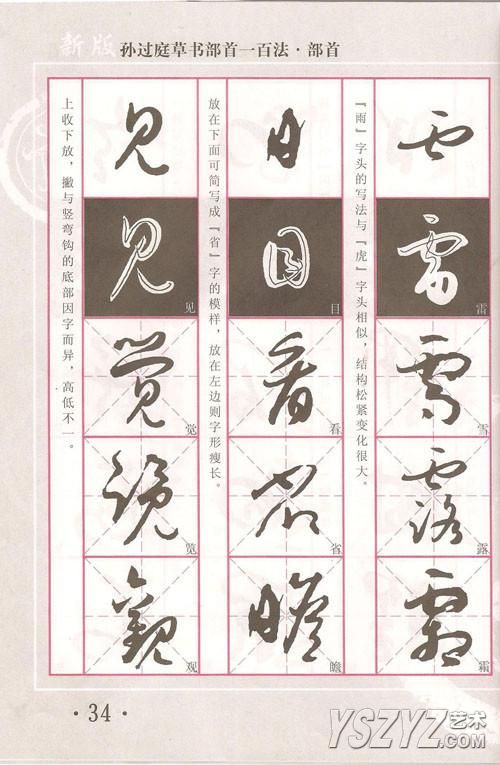 新版 孙过庭草书部首一百法·部首
雷
雪
露
霜
『雨』字头的写法与『虎』字头相似，结构松紧变化很大。
目
看
省
瞻
放在下面可简写成『省』字的模样，放在左边则字形瘦长。
见
觉
览
观
上收下放，撇与竖弯钩的底部因字而异，高低不一。
·34·
YSZYZ艺术.COM